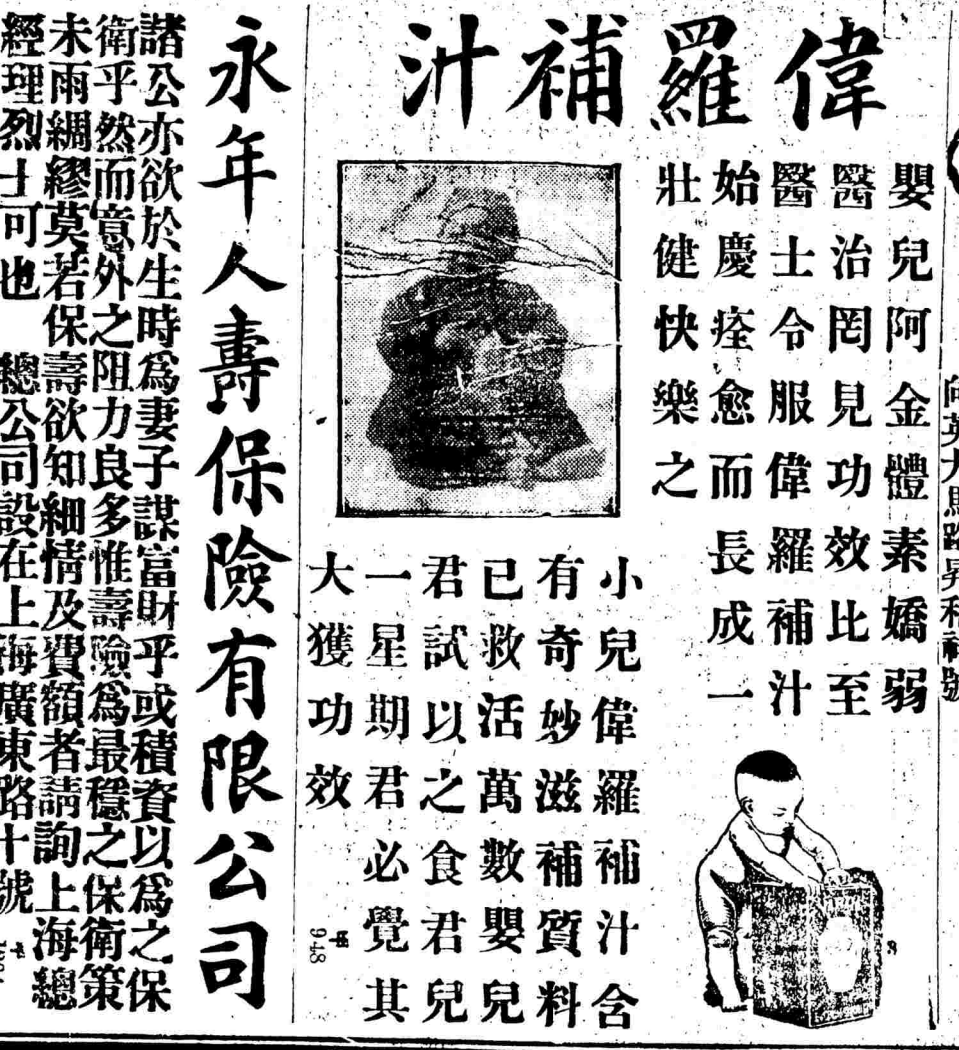 向英大馬路昇和祥號
偉羅補汁
嬰兒阿金體素嬌弱
醫治罔見功效比至
醫士令服偉羅補汁
始慶痊愈而長成一
壯健快樂之
小兒偉羅補汁含
有奇妙滋補質料
已救活萬數嬰兒
君試以之食君兒
一星期君必覺其
大獲功效
948
永年人壽保險有限公司
諸公亦欲於生時爲妻子謀富財乎或積資以爲之保
衛乎然而意外之阻力良多惟壽險爲最穩之保衛策
未雨綢繆莫若保壽欲知細情及費額者請詢上海總
經理烈士可也 總公司設在上海廣東路十號